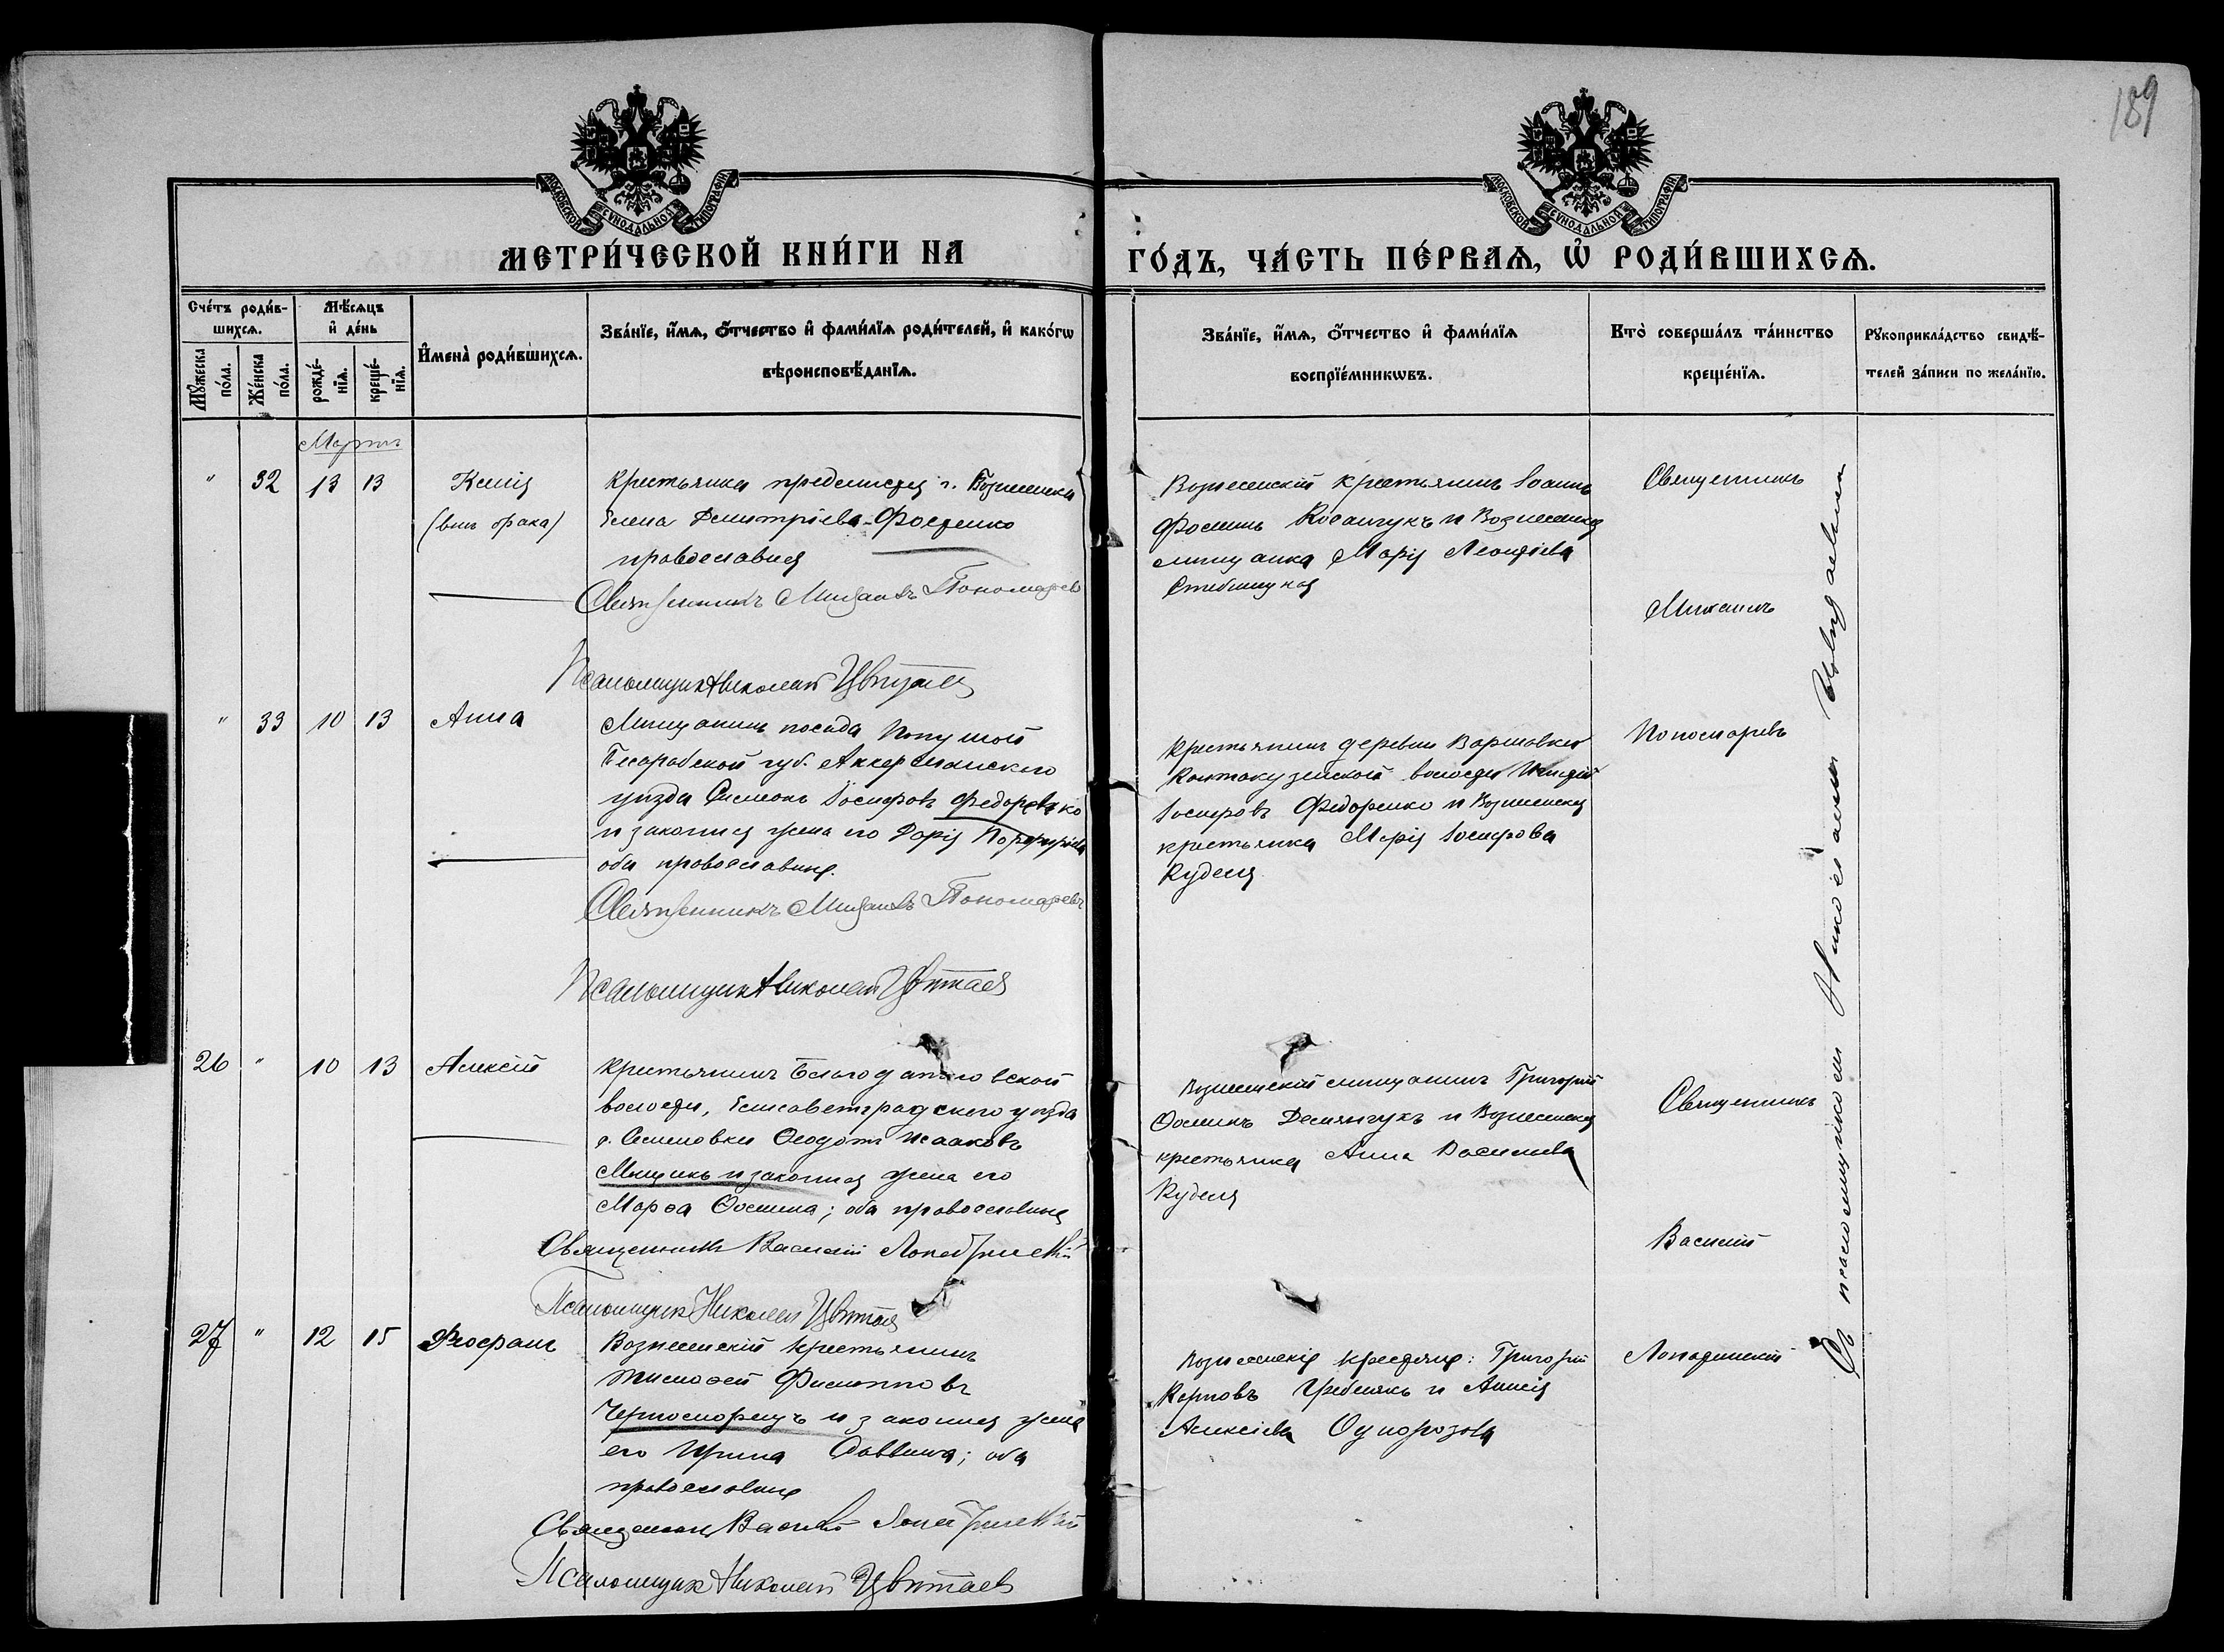 189
МОСКОВСКОЙ СѴНОДАЛЬНОЙ ТИПОГРАФІИ
МОСКОВСКОЙ СѴНОДАЛЬНОЙ ТИПОГРАФІИ
МЕТРИ́ЧЕСКОЙ КНИ́ГИ НА
ГО́ДЪ, ЧА́СТЬ ПЕ́РВАѦ, Ѡ҆ РОДИ́ВШИХСѦ.
Сче́тъ роди́в-
шихсѧ.
Мꙋ́жеска
по́ла.
Же́нска
по́ла.
Мѣ́сѧцъ
и҆ де́нь
рожде́-
нїѧ.
креще́-
нїѧ.
И҆мена̀ роди́вшихсѧ.
Зва́нїе, и҆́мѧ, ѻ҆́тчество и҆ фами́лїѧ роди́телей, и҆ како́гѡ
вѣроисповѣ́данїѧ.
Зва́нїе, и҆́мѧ, ѻ҆́тчество и҆ фами́лїѧ
воспрїе́мникѡвъ.
Кто̀ соверша́лъ та́инство
креще́нїѧ.
Рꙋкоприкла́дство свидѣ́-
телей за́писи по жела́нїю.
Мартъ
" 32 13 13
Ксенія
(внѣ брака)
Крестьянка предмѣстья г. Вознесенска
Елена Димитріева Фостенко
православная
Священникъ Михаилъ Пономаревъ
Псаломщикъ Николай Цвѣтаев
Вознесенскій крестьянинъ Іоаннъ
Фоминъ Косанчукъ и Вознесенская
мѣщанка Марія Леонтіева
Священникъ
Михаилъ
Пономаревъ
" 33 10 13
Анна
Мѣщанинъ посада Попушой
Бесарабской губ. Аккерманскаго
уѣзда Симеонъ Іосифовъ Федоренко
и законная жена его Дарія Порфиріева
оба православные.
Священникъ Михаилъ Пономаревъ
Псаломщикъ Николай Цвѣтаев
Крестьянинъ деревни Варшавки
Кантакузенской волости
Іосифовъ Федоренко и Вознесенская
крестьянка Марія Іосифова
Куделя
26 " 10 13
Алексій
Крестьянинъ Благодатновской
волости, Елисаветградскаго уѣзда
д. Семеновки Ѳеодотъ Исааковъ
и законная жена его
Марѳа Ѳомина; оба православные
Священникъ Василій Лопатинскій
Псаломщикъ Николай Цвѣтаев
Вознесенскій мѣщанинъ Григорій
Ѳоминъ Демянчукъ и Вознесенская
крестьянка Анна Васильева
Куделя
Священникъ
Василій
Лопатинскій
27 " 12 15
Ѳеофанъ
Вознесенскій крестьянинъ
Тимоѳей Филипповъ
Черноморецъ и законная жена
его Ирина Саввина; оба
православные
Священникъ Василій Лопатинскій
Псаломщикъ Николай Цвѣтаев
Вознесенскіе крестьяне: Григорій
Карповъ Гребенюкъ и Анисія
Алексіева
Съ псаломщикомъ Николаемъ Цвѣтаевымъ